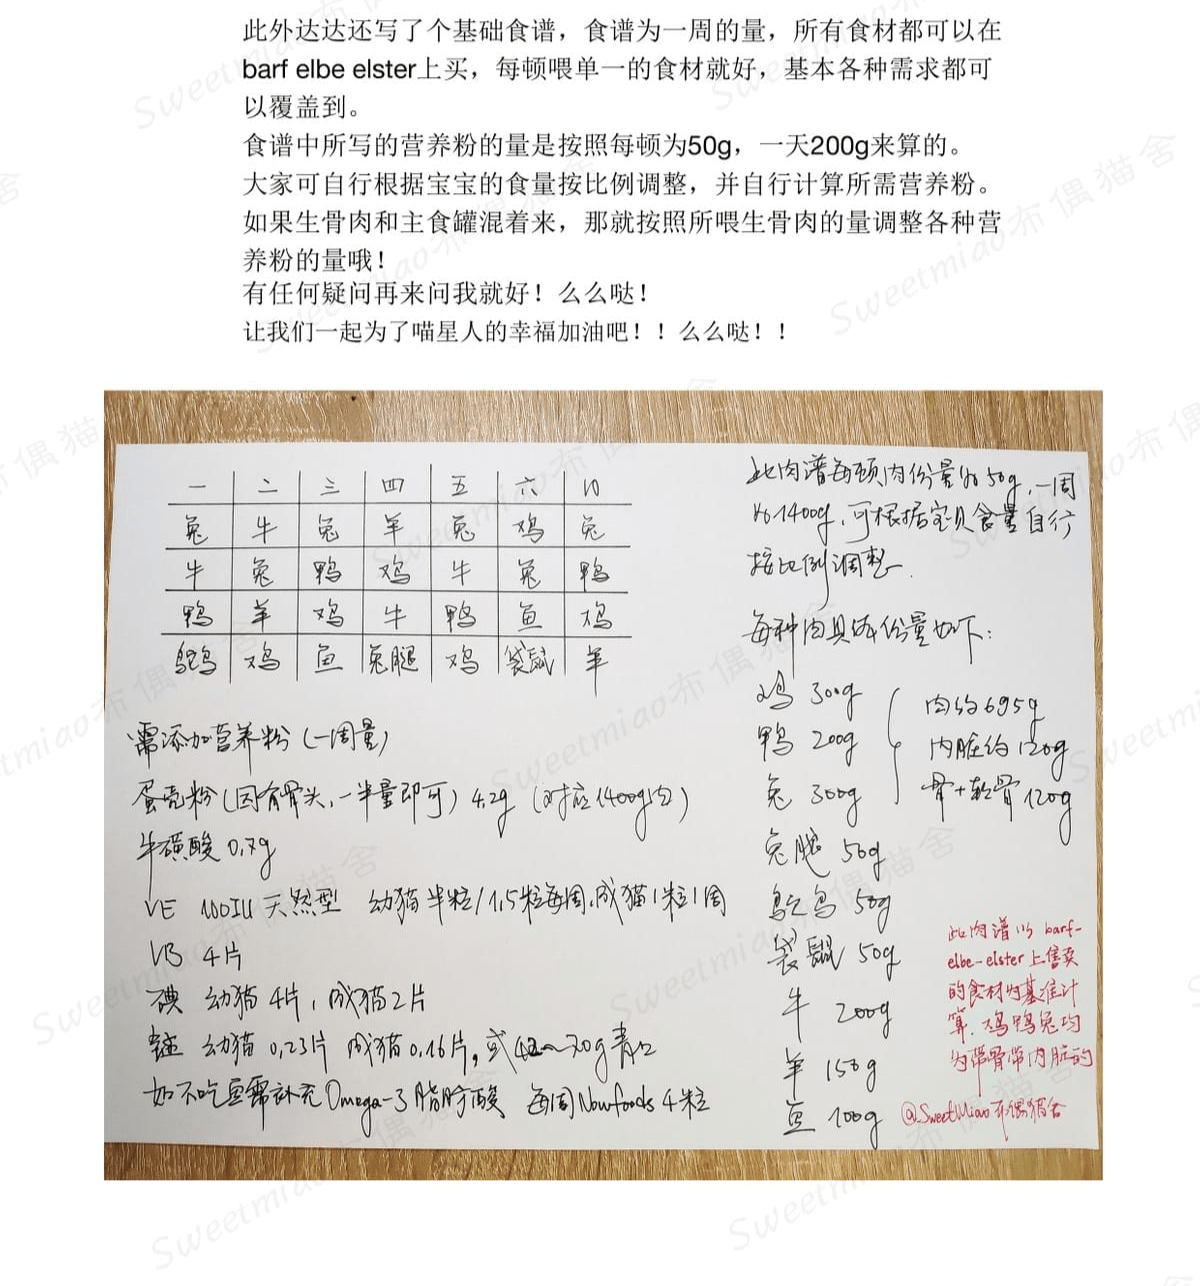 此外达达还写了个基础食谱，食谱为一周的量，所有食材都可以在
barf elbe elster上买，每顿喂单一的食材就好，基本各种需求都可
以覆盖到。
食谱中所写的营养粉的量是按照每顿为50g，一天200g来算的。
大家可自行根据宝宝的食量按比例调整，并自行计算所需营养粉。
如果生骨肉和主食罐混着来，那就按照所喂生骨肉的量调整各种营
养粉的量哦！
有任何疑问再来问我就好！么么哒！
让我们一起为了喵星人的幸福加油吧！！么么哒！！
一 二 三 四 五 六 日
兔 牛 兔 羊 兔 鸡 兔
牛 兔 鸭 鸡 牛 兔 鸭
鸭 羊 鸡 牛 鸭 鱼 鸡
鸵鸟 鸡 鱼 兔腿 鸡 袋鼠 羊
需添加营养粉（一周量）
蛋壳粉（因有骨头，一半量即可）4.2g（对应1400g肉）
牛磺酸 0.7g
VE 100IU 天然型 幼猫半粒/1.5粒每周，成猫1粒1周
VB 4片
碘 幼猫4片，成猫2片
锰 幼猫0.23片 成猫0.16片，或 ~70g青口
如不吃鱼需补充Omega-3脂肪酸 每周Nowfoods 4粒
此肉谱每顿肉份量为50g，一周
为1400g，可根据宝贝食量自行
按比例调整.
每种肉具体份量如下：
鸡 300g
鸭 200g
兔 300g
肉约695g
内脏约120g
骨+软骨120g
兔腿 50g
鸵鸟 50g
袋鼠 50g
牛 200g
羊 150g
鱼 100g
此肉谱以 barf-
elbe-elster上售卖
的食材为基准计
算. 鸡鸭兔均
为带骨带内脏的
@SweetMiao布偶猫舍
Sweetmiao布偶猫舍